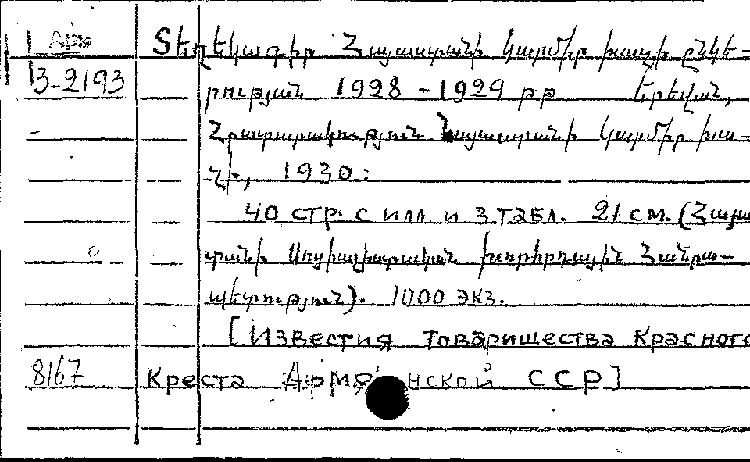 Арм
Տեղեկագիր Հայաստանի Կարմիր խաչի ընկե-
3-2193
րության 1928-1929 թթ Երեվան,
Հրատարակություն Հայաստանի Կարմիր խա-
չի, 1930:
40 стр. с илл. и 3 табл. 21 см. (Հայաս
տանի Սոցիալիստական խորհրդային Հանրա-
պետություն). 1000 экз.
[Известия Товарищества Красного
8167
Креста Армянской ССР]